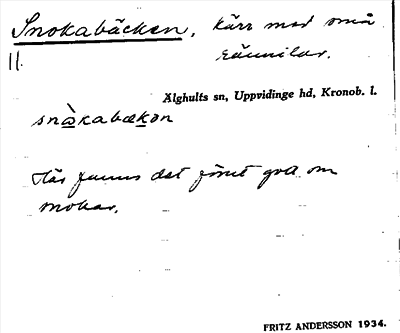 Snokabäcken, kärr med små
11. rännilar.
Älghults sn, Uppvidinge hd, Kronob. l.
snòkabækən
Här fanns det förut gott om
snokar.
FRITZ ANDERSSON 1934.